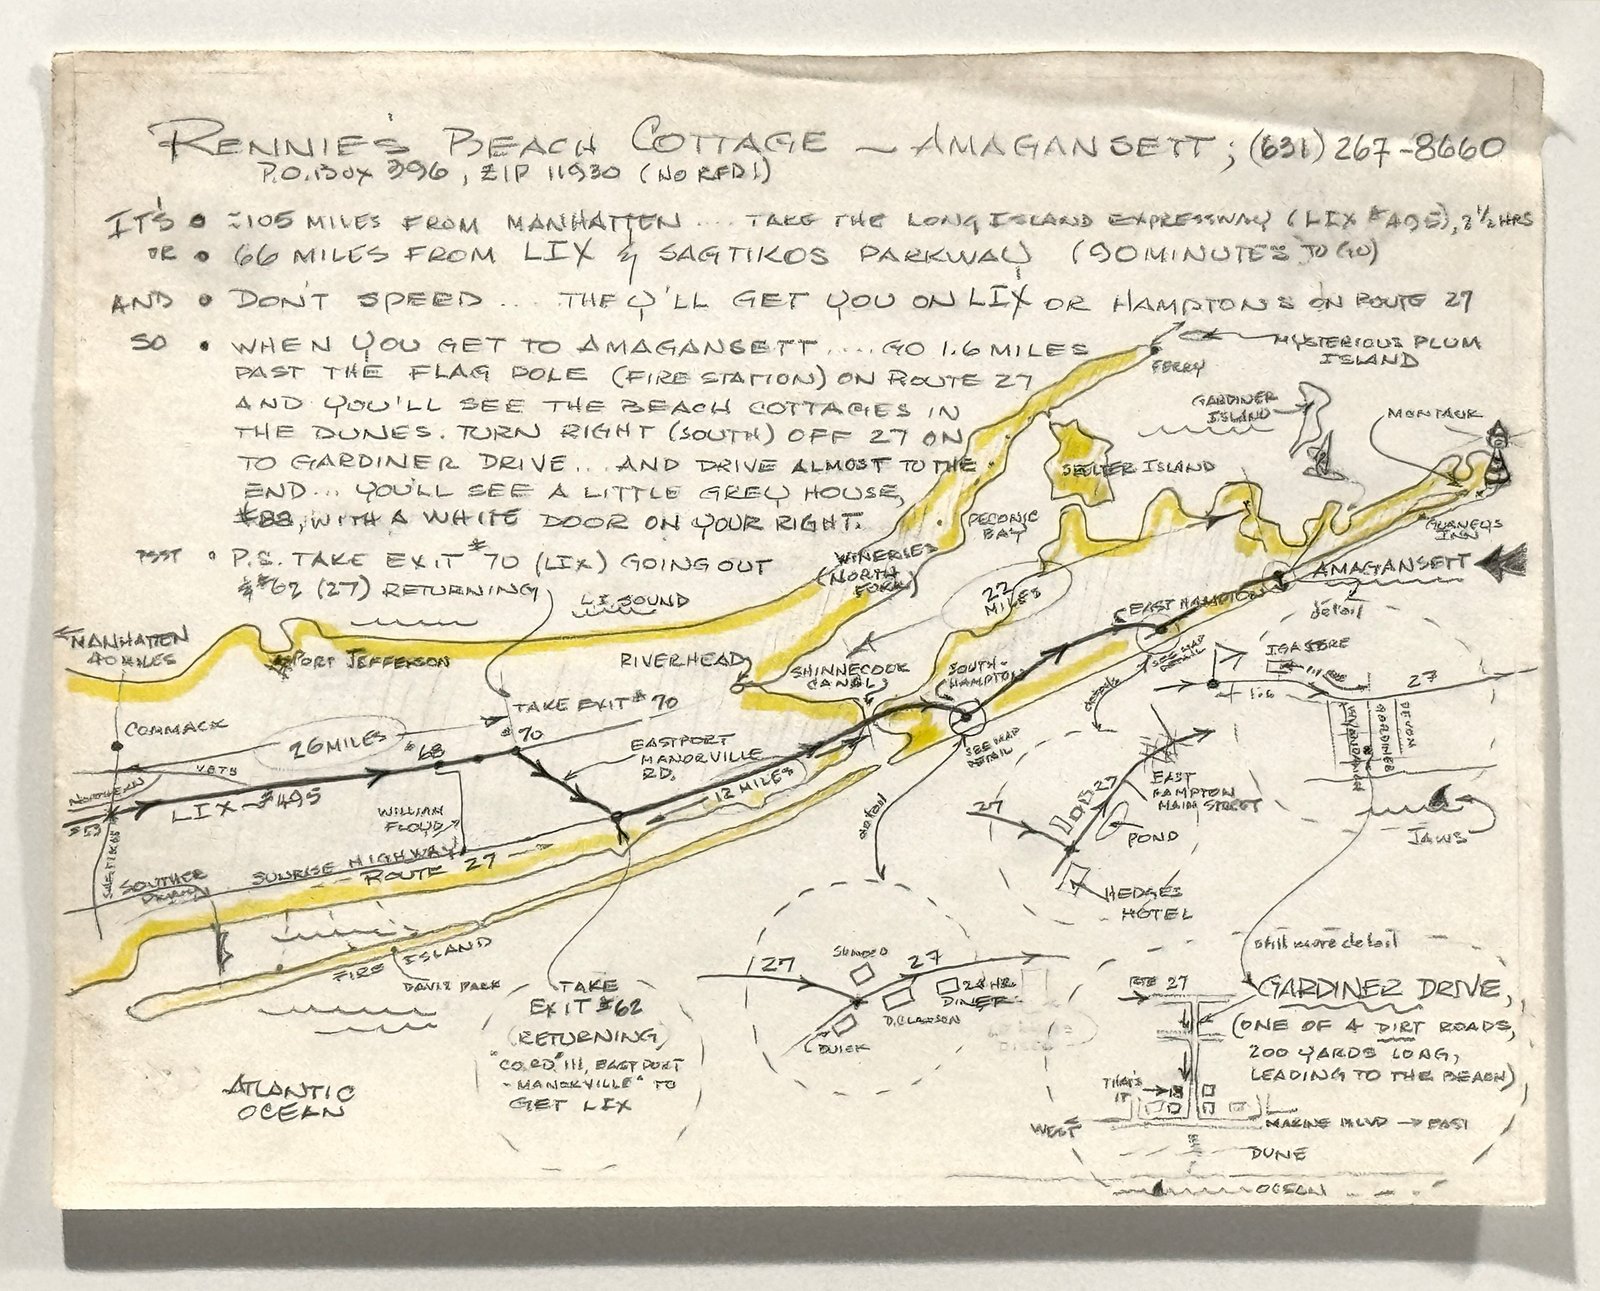 RENNIE'S BEACH COTTAGE ~ AMAGANSETT; (631) 267-8660
P.O. BOX 396, ZIP 11930 (NO RFD!)
IT'S • ≈105 MILES FROM MANHATTEN ... TAKE THE LONG ISLAND EXPRESSWAY (LIX #495), 2½ HRS
OR • 66 MILES FROM LIX & SAGTIKOS PARKWAY (90 MINUTES TO GO)
AND • DON'T SPEED ... THEY'LL GET YOU ON LIX OR HAMPTONS ON ROUTE 27
SO • WHEN YOU GET TO AMAGANSETT .... GO 1.6 MILES
PAST THE FLAG POLE (FIRE STATION) ON ROUTE 27
AND YOU'LL SEE THE BEACH COTTAGES IN
THE DUNES. TURN RIGHT (SOUTH) OFF 27 ON
TO GARDINER DRIVE... AND DRIVE ALMOST TO THE
END... YOU'LL SEE A LITTLE GREY HOUSE,
#88, WITH A WHITE DOOR ON YOUR RIGHT.
PSST • P.S. TAKE EXIT #70 (LIX) GOING OUT
& #62 (27) RETURNING
MYSTERIOUS PLUM
ISLAND
FERRY
GARDINER
ISLAND
MONTAUK
SHELTER ISLAND
PECONIC
BAY
GURNEYS
INN
WINERIES
(NORTH
FORK)
22
MILES
AMAGANSETT
detail
EAST HAMPTON
SEE MAP
DETAIL
LI SOUND
MANHATTEN
40 MILES
PORT JEFFERSON
RIVERHEAD
SHINNECOCK
CANAL
SOUTH-
HAMPTON
IGA STORE
1.6
27
GARDINER
DEVON
TAKE EXIT #70
COMMACK
26 MILES
#68
70
EASTPORT
MANORVILLE
RD.
SEE MAP
DETAIL
detail
VETS
NORTHERN
LIX - #495
#53
SAGTIKOS
WILLIAM
FLOYD
12 MILES
SUNRISE HIGHWAY
ROUTE 27
SOUTHERN
detail
27
27
EAST
HAMPTON
MAIN STREET
POND
HEDGES
HOTEL
JAWS
FIRE ISLAND
DAVIS PARK
ATLANTIC
OCEAN
TAKE
EXIT #62
(RETURNING)
"CO. RD" 111, EASTPORT
- MANORVILLE" TO
GET LIX
27
SUNOCO
27
24 HR.
DINER
D. CLAWSON
BUICK
still more detail
RTE 27
GARDINER DRIVE,
(ONE OF 4 DIRT ROADS,
200 YARDS LONG,
LEADING TO THE BEACH)
THAT'S
IT
WEST
MARINE BLVD → EAST
DUNE
OCEAN